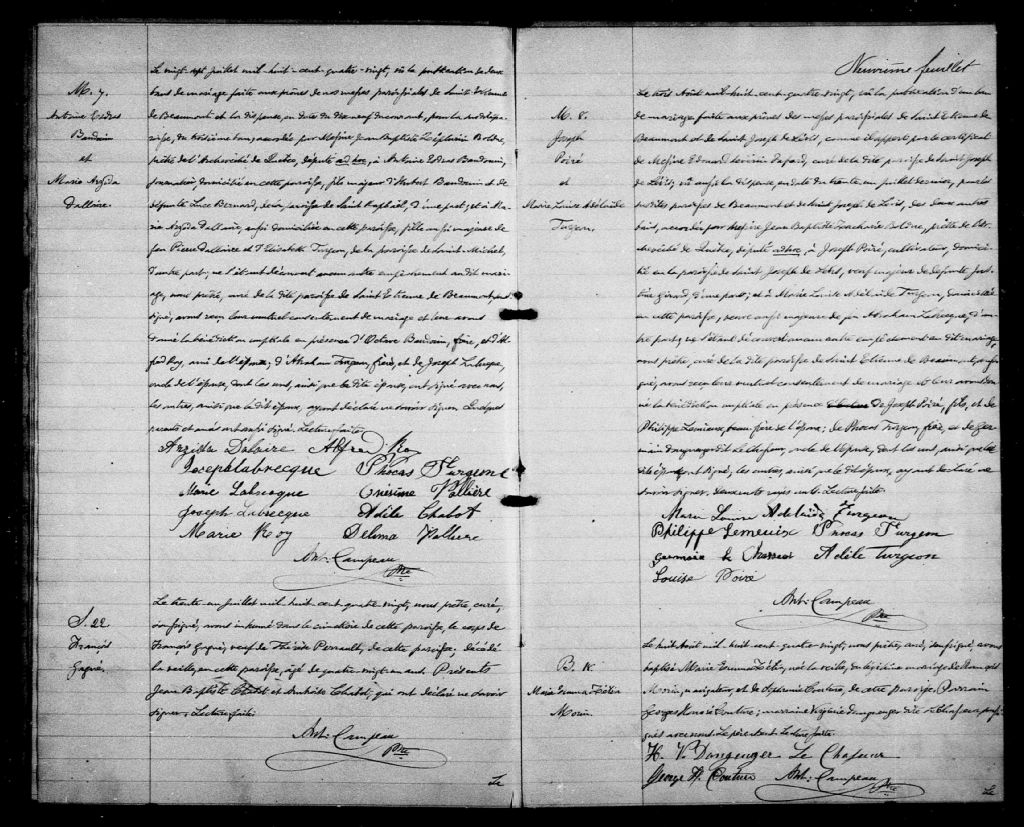 M. 7.
Antoine Esdras
Baudoin
et
Marie Arzida
Dallaire.
Le vingt-sept juillet mil-huit-cent-quatre-vingt, vû la publication de deux
bans de mariage faite aux prônes de nos messes paroissiales de Saint-Etienne
de Beaumont et la dispense, en date du dix-neuf du courant, pour la
du troisième ban, accordée par Messire Jean Baptiste Zéphirin Bolduc,
prêtre de l'Archevêché de Québec, député ad hoc, à Antoine Esdras Baudouin,
journalier, domicilié en cette paroisse, fils majeur d'Hubert Baudouin et de
défunte Luce Bernard, de la paroisse de Saint Raphaël, d'une part; et à Ma-
rie Arzida Dallaire, aussi domiciliée en cette paroisse, fille aussi majeure de
feu Pierre Dallaire et d'Elizabeth Turgeon, de la paroisse de Saint-Michel,
d'autre part; ne s'étant découvert aucun autre empêchement au dit maria-
ge, nous prêtre, curé de la dite paroisse de Saint Etienne de Beaumont, sous-
signé, avons reçu leur mutuel consentement de mariage et leur avons
donné la bénédiction nuptiale en présence d'Octave Baudoin, frère, et d'Al-
fred Roy, ami de l'époux, d'Abraham Turgeon, frère, et de Joseph Labrecque,
oncle de l'épouse, dont les uns, ainsi que la dite épouse, ont signé avec nous,
les autres, ainsi que le dit époux, ayant déclaré ne savoir signer. Quelques
parents et amis ont aussi signé. Lecture faite.
Arzida Dalaire Alfred Roy
Joseph Labrecque Phocas Turgeon
Marie Labrecque Onésime Vallière
Joseph Labrecque Adèle Chabot
Marie Roy Delima Valliere
Ant: Campeau
Ptre
S. 22
François
Gagné.
Le trente un juillet mil-huit-cent-quatre-vingt, nous prêtre, curé,
soussigné, avons inhumé dans le cimetière de cette paroisse, le corps de
François Gagné, veuf de Thérèse Perrault, de cette paroisse, décédé
la veille, en cette paroisse, âgé de quatre-vingt-un ans. Présents
Jean Baptiste Chabot et Chabot, qui ont déclaré ne savoir
signer. Lecture faite.
Ant: Campeau
Ptre
Le
Neuvième feuillet
M. 8.
Joseph
Poiré
et
Marie Louise Adélaïde
Turgeon.
Le trois Août mil-huit-cent-quatre-vingt, vû la publication d'un ban
de mariage faite aux prônes des messes paroissiales de Saint Etienne de
Beaumont et de Saint Joseph de Lévis, comme il appert par le certificat
de Messire Edouard Fafard, curé de la dite paroisse de Saint Joseph
de Lévis; vû aussi la dispense, en date du trente-un juillet dernier, pour les
susdites paroisses de Beaumont et de Saint Joseph de Lévis, des deux autres
bans, accordée par Messire Jean Baptiste Zacharie Bolduc, prêtre de l'Ar-
chevêché de Québec, député ad hoc, à Joseph Poiré, cultivateur, domici-
lié en la paroisse de Saint Joseph de Lévis, veuf majeur de défunte Jus-
tine Girard, d'une part; et à Marie Louise Adélaïde Turgeon, domiciliée
en cette paroisse, veuve aussi majeure de feu Abraham Labrecque, d'au-
tre part; ne s'étant découvert aucun autre empêchement au dit mariage,
nous prêtre, curé de la dite paroisse de Saint Etienne de Beaumont, soussi-
gné, avons reçu leur mutuel consentement de mariage et leur avons don-
né la bénédiction nuptiale en présence de Joseph Poiré, fils, et de
Philippe Lemieux, beau-frère de l'époux; de Phocas Turgeon, frère, et de Ger-
main Dangueuger dit Le Chasseur, de l'épouse, dont les uns, ainsi que la
dite épouse ont signé, les autres, ainsi que le dit époux, ayant déclaré ne
savoir signer. Deux mots rayés nuls. Lecture faite.
Marie Louise Adelaide Turgeon
Philippe Lemieux Phocas Turgeon
Germain Le Chasseur Adèle Turgeon
Louise Poiré
Ant: Campeau
Ptre
B. 16
Marie Emma Zélia
Morin.
Le huit Août mil-huit-cent-quatre-vingt, nous prêtre, curé, soussigné, avons
baptisé Marie Emma Zélia, née la veille, du légitime mariage de
Morin, navigateur, et de Séphranie Couture, de cette paroisse. Parrain
Georges Honoré Couture; marraine Virginie Dangueuger dite Le Chasseur, sous-
signés avec nous. Le père absent. Lecture faite.
H. V. Dangeuger Le Chaseur
George H. Couture Ant: Campeau
Ptre
Le